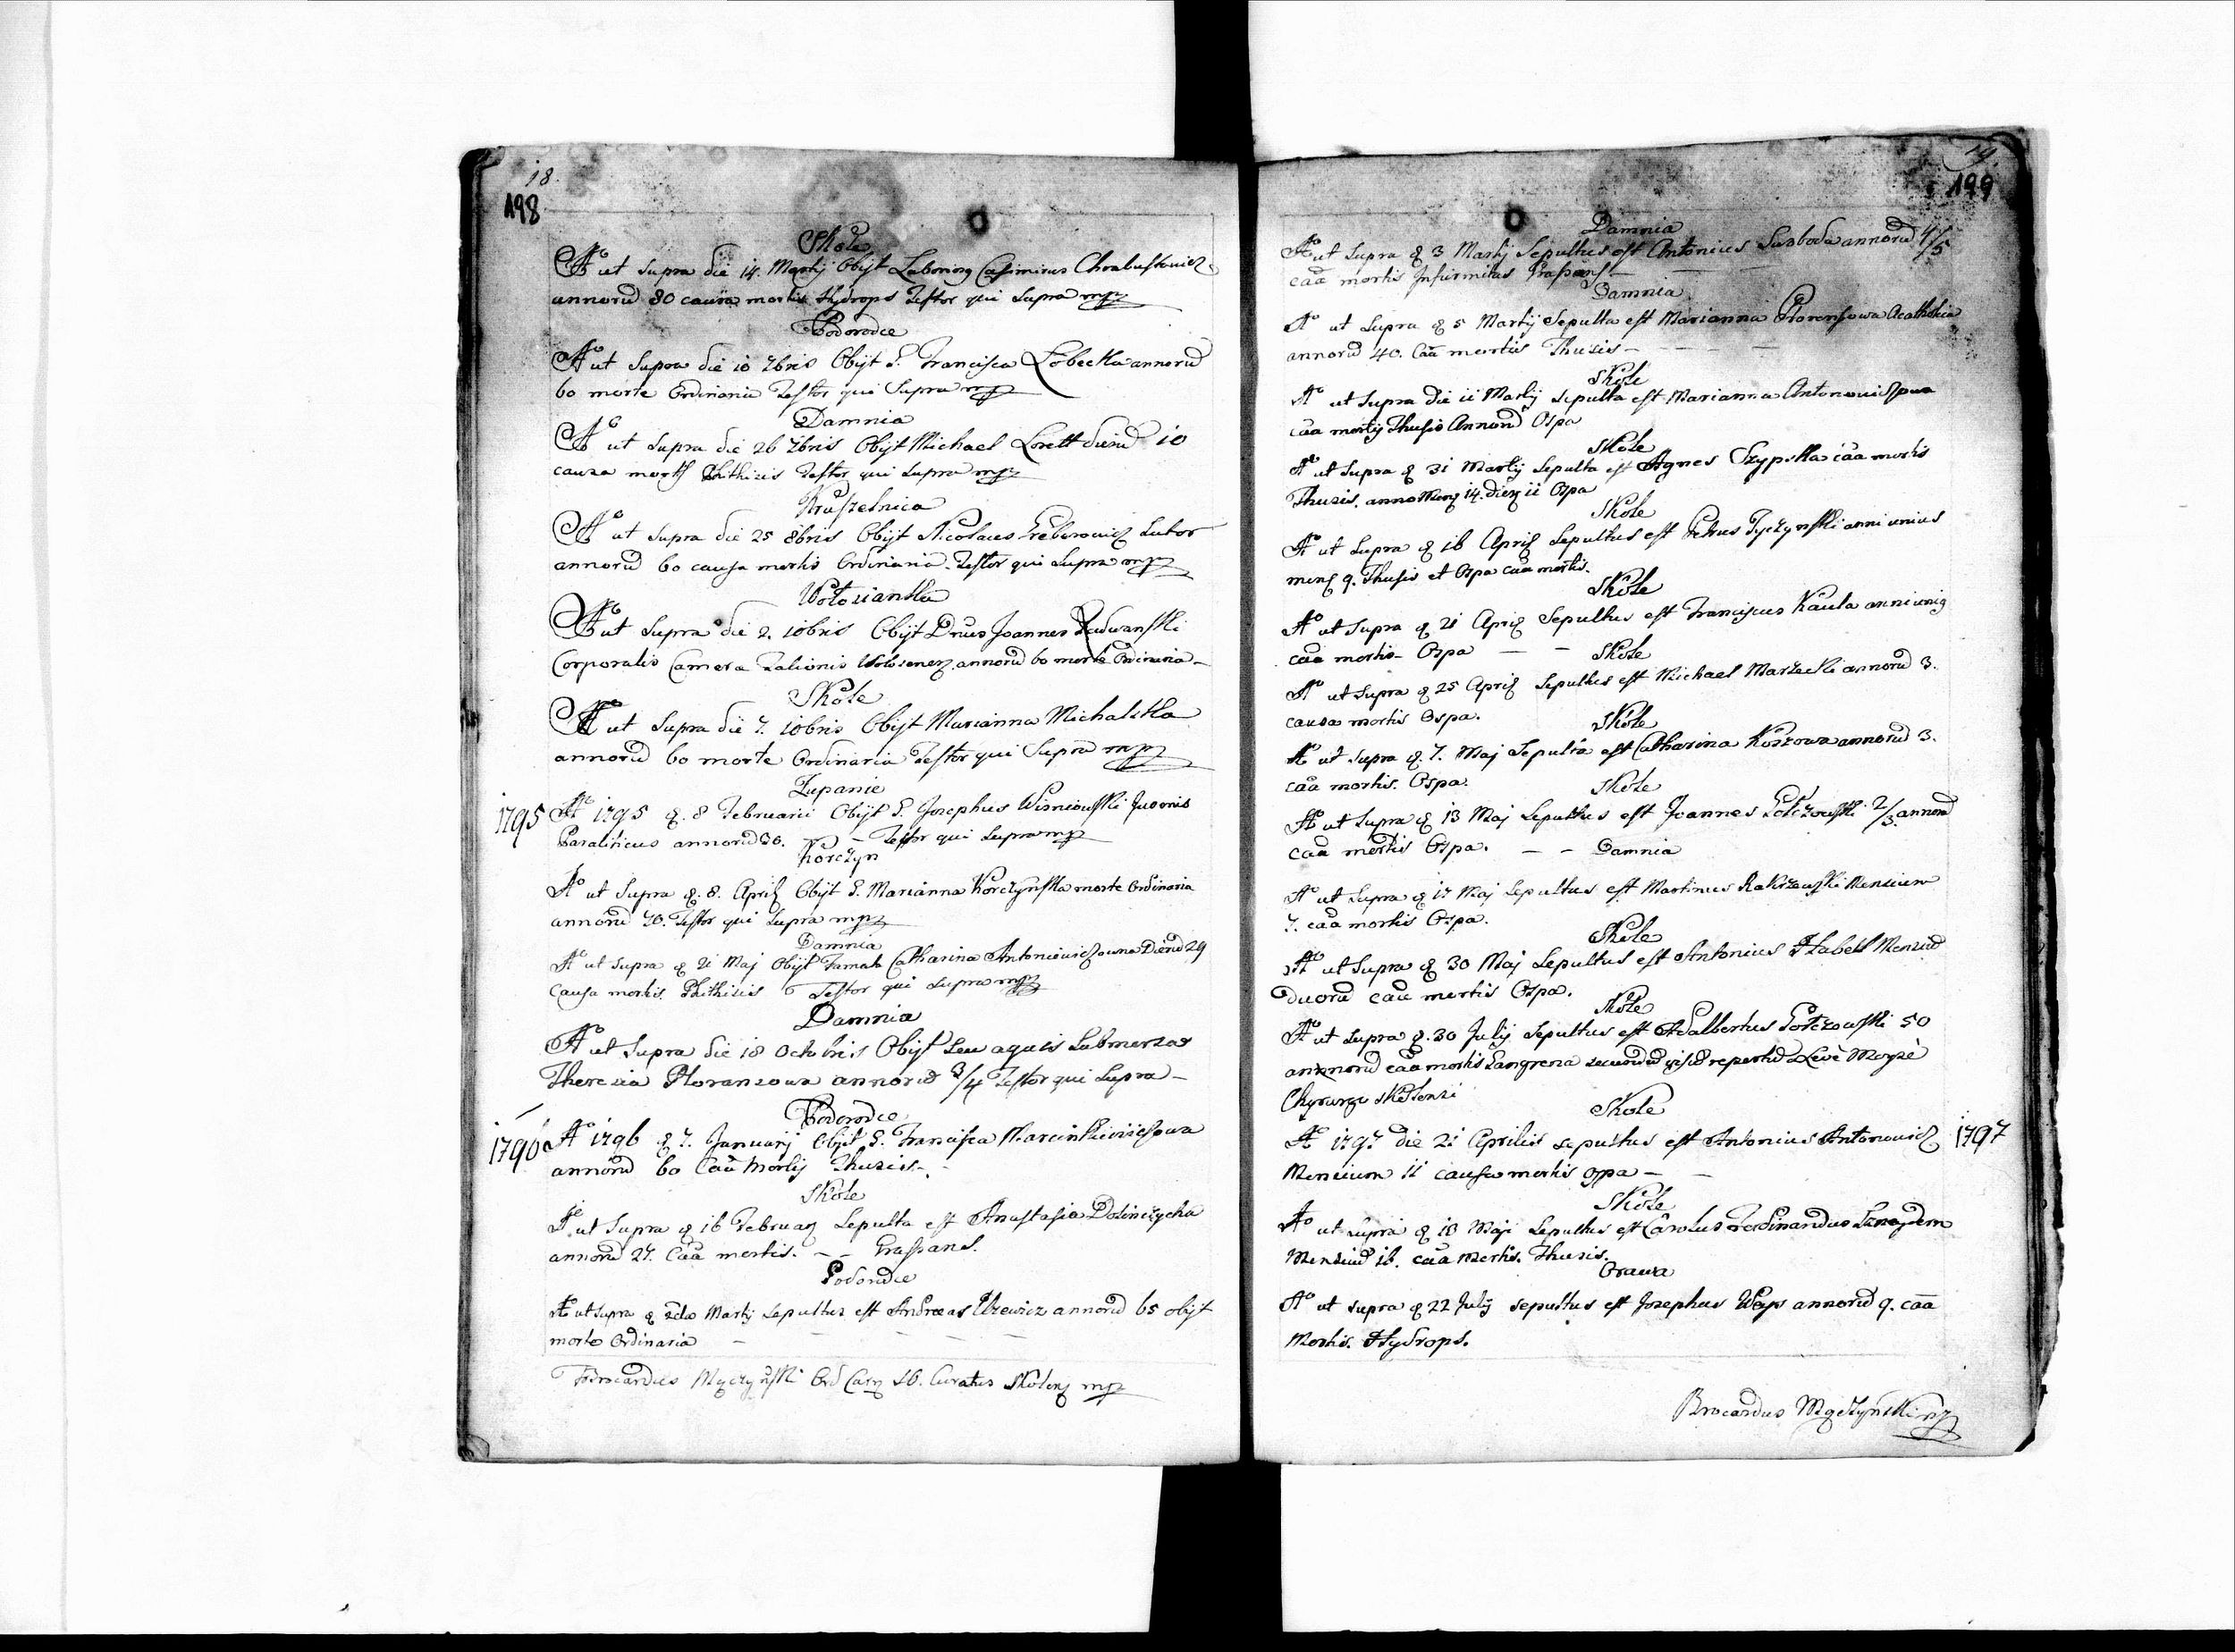 18.
198
Skole
Aº ut Supra die 14. Martij Obijt Laborios Casimirus Chrabustowicz
annorū 80 causa mortis Hydrops Testor qui Supra mpp
Podorodce
Aº ut Supra die 10 7bris Obijt G. Francisca Łobecka annorū
60 morte Ordinaria Testor qui Supra mpp
Damnia
Aº ut Supra die 26 7bris Obijt Michael Lorett dierū 10
causa mortis Phthisis Testor qui Supra mpp
Kruszelnica
Aº ut Supra die 25 8bris Obijt Nicolaus Greberowicz Sutor
annorū 60 causa mortis Ordinaria. Testor qui Supra mpp
Wołosianka
Aº ut Supra die 2. 10bris Obijt Dnus Joannes Radwanski
Corporalis Camera annorū 60 morte Ordinaria –
Skole
Aº ut Supra die 7. 10bris Obijt Marianna Michalska
annorū 60 morte Ordinaria Testor qui Supra mpp
Zupanie
1795 Aº 1795 d. 8 Februarii Obijt G. Josephus Wisniowski Juvenis
Paraliticus annorū 30. – Testor qui Supra mpp
Korczyn
Aº ut Supra d. 8. April Obijt G. Marianna Korczynska morte Ordinaria
annorū 70. Testor qui Supra mpp
Damnia
Aº ut Supra d 21 Maj Obijt Famata Catharina Antoniewiczowna Dierū 29
Causa mortis Phthisis Testor qui Supra mpp
Damnia
Aº ut Supra die 18 Octobris Obijt seu aquis Submersa
Theresia Floransowa annorū 3/4 Testor qui Supra –
Podorodce
1796 Aº 1796 d 7. Januarij Obijt G. Francisca Marcinkiewiczowa
annorū 60 Caūa Mortis Thusis –
Skole
Aº ut Supra d 16 Februar Sepulta est Anastasia Dolinczycha
annorū 27. Caūa mortis. – – Grassans.
Podorodce
Aº ut Supra d 2da Martij Sepultus est Andreas Ilzewicz annorū 65 obijt
morte Ordinaria – – – – –
Brocardus Męczyński Ord Carm Curatus Skolens mpp
19.
199
Damnia
Aº ut Supra d 3 Martij Sepultus est Antonius Swoboda annorū 4/5
caūa mortis Infirmitas Grassans –
Damnia
Aº ut Supra d 5 Martij Sepulta est Marianna Floransowa Acatholica
annorū 40. Caūa mortis Thusis – – – –
Skole
Aº ut Supra die 11 Martij Sepulta est Marianna Antonowiczowa
caūa mortis Thusis Annorū Ospa
Skole
Aº ut Supra d 31 Martij Sepulta est Agnes Szypska caūa mortis
Thusis. anno Mens 14. dier 11 Ospa
Skole
Aº ut Supra d 16 April Sepultus est Petrus Tyczynski anni unius
mens 9. Thusis et Ospa caūa mortis.
Skole
Aº ut Supra d 21 April Sepultus est Franciscus Kaula anni unis
caūa mortis – Ospa – –
Skole
Aº ut Supra d 25 April Sepultus est Michael Marzecki annorū 3.
causa mortis Ospa.
Skole
Aº ut Supra d. 7. Maj Sepulta est Catharina Koszowa annorū 3.
caūa mortis. Ospa.
Skole
Aº ut Supra d 13 Maj Sepultus est Joannes Gołczowski 2/3 annorū
caūa mortis Ospa. – –
Damnia
Aº ut Supra d 17 Maj Sepultus est Martinus Rakrzewski Mensium
7. caūa mortis Ospa.
Skole
Aº ut Supra d 30 Maj Sepultus est Antonius Habell Mensiū
Duorū caūa mortis Ospa.
Skole
Aº ut Supra d. 30 Julij Sepultus est Adalbertus Gołczowski 50
annorū caūa mortis Gangrena secundū visū repertū Moysè
Chyrurgo Skolensi
Skole
Aº 1797 die 21 Aprilis sepultus est Antonius Antonowicz 1797
Mensium 11 causa mortis ospa – –
Skole
Aº ut Supra d 18 Maji Sepultus est Carolus Ferdinandus Sznayder
Mensiū 16. caūa mortis. Thusis.
Orawa
Aº ut supra d 22 Julij sepultus est Josephus Ways annorū 9. caūa
Mortis. Hydrops.
Brocardus Męczyński mpp